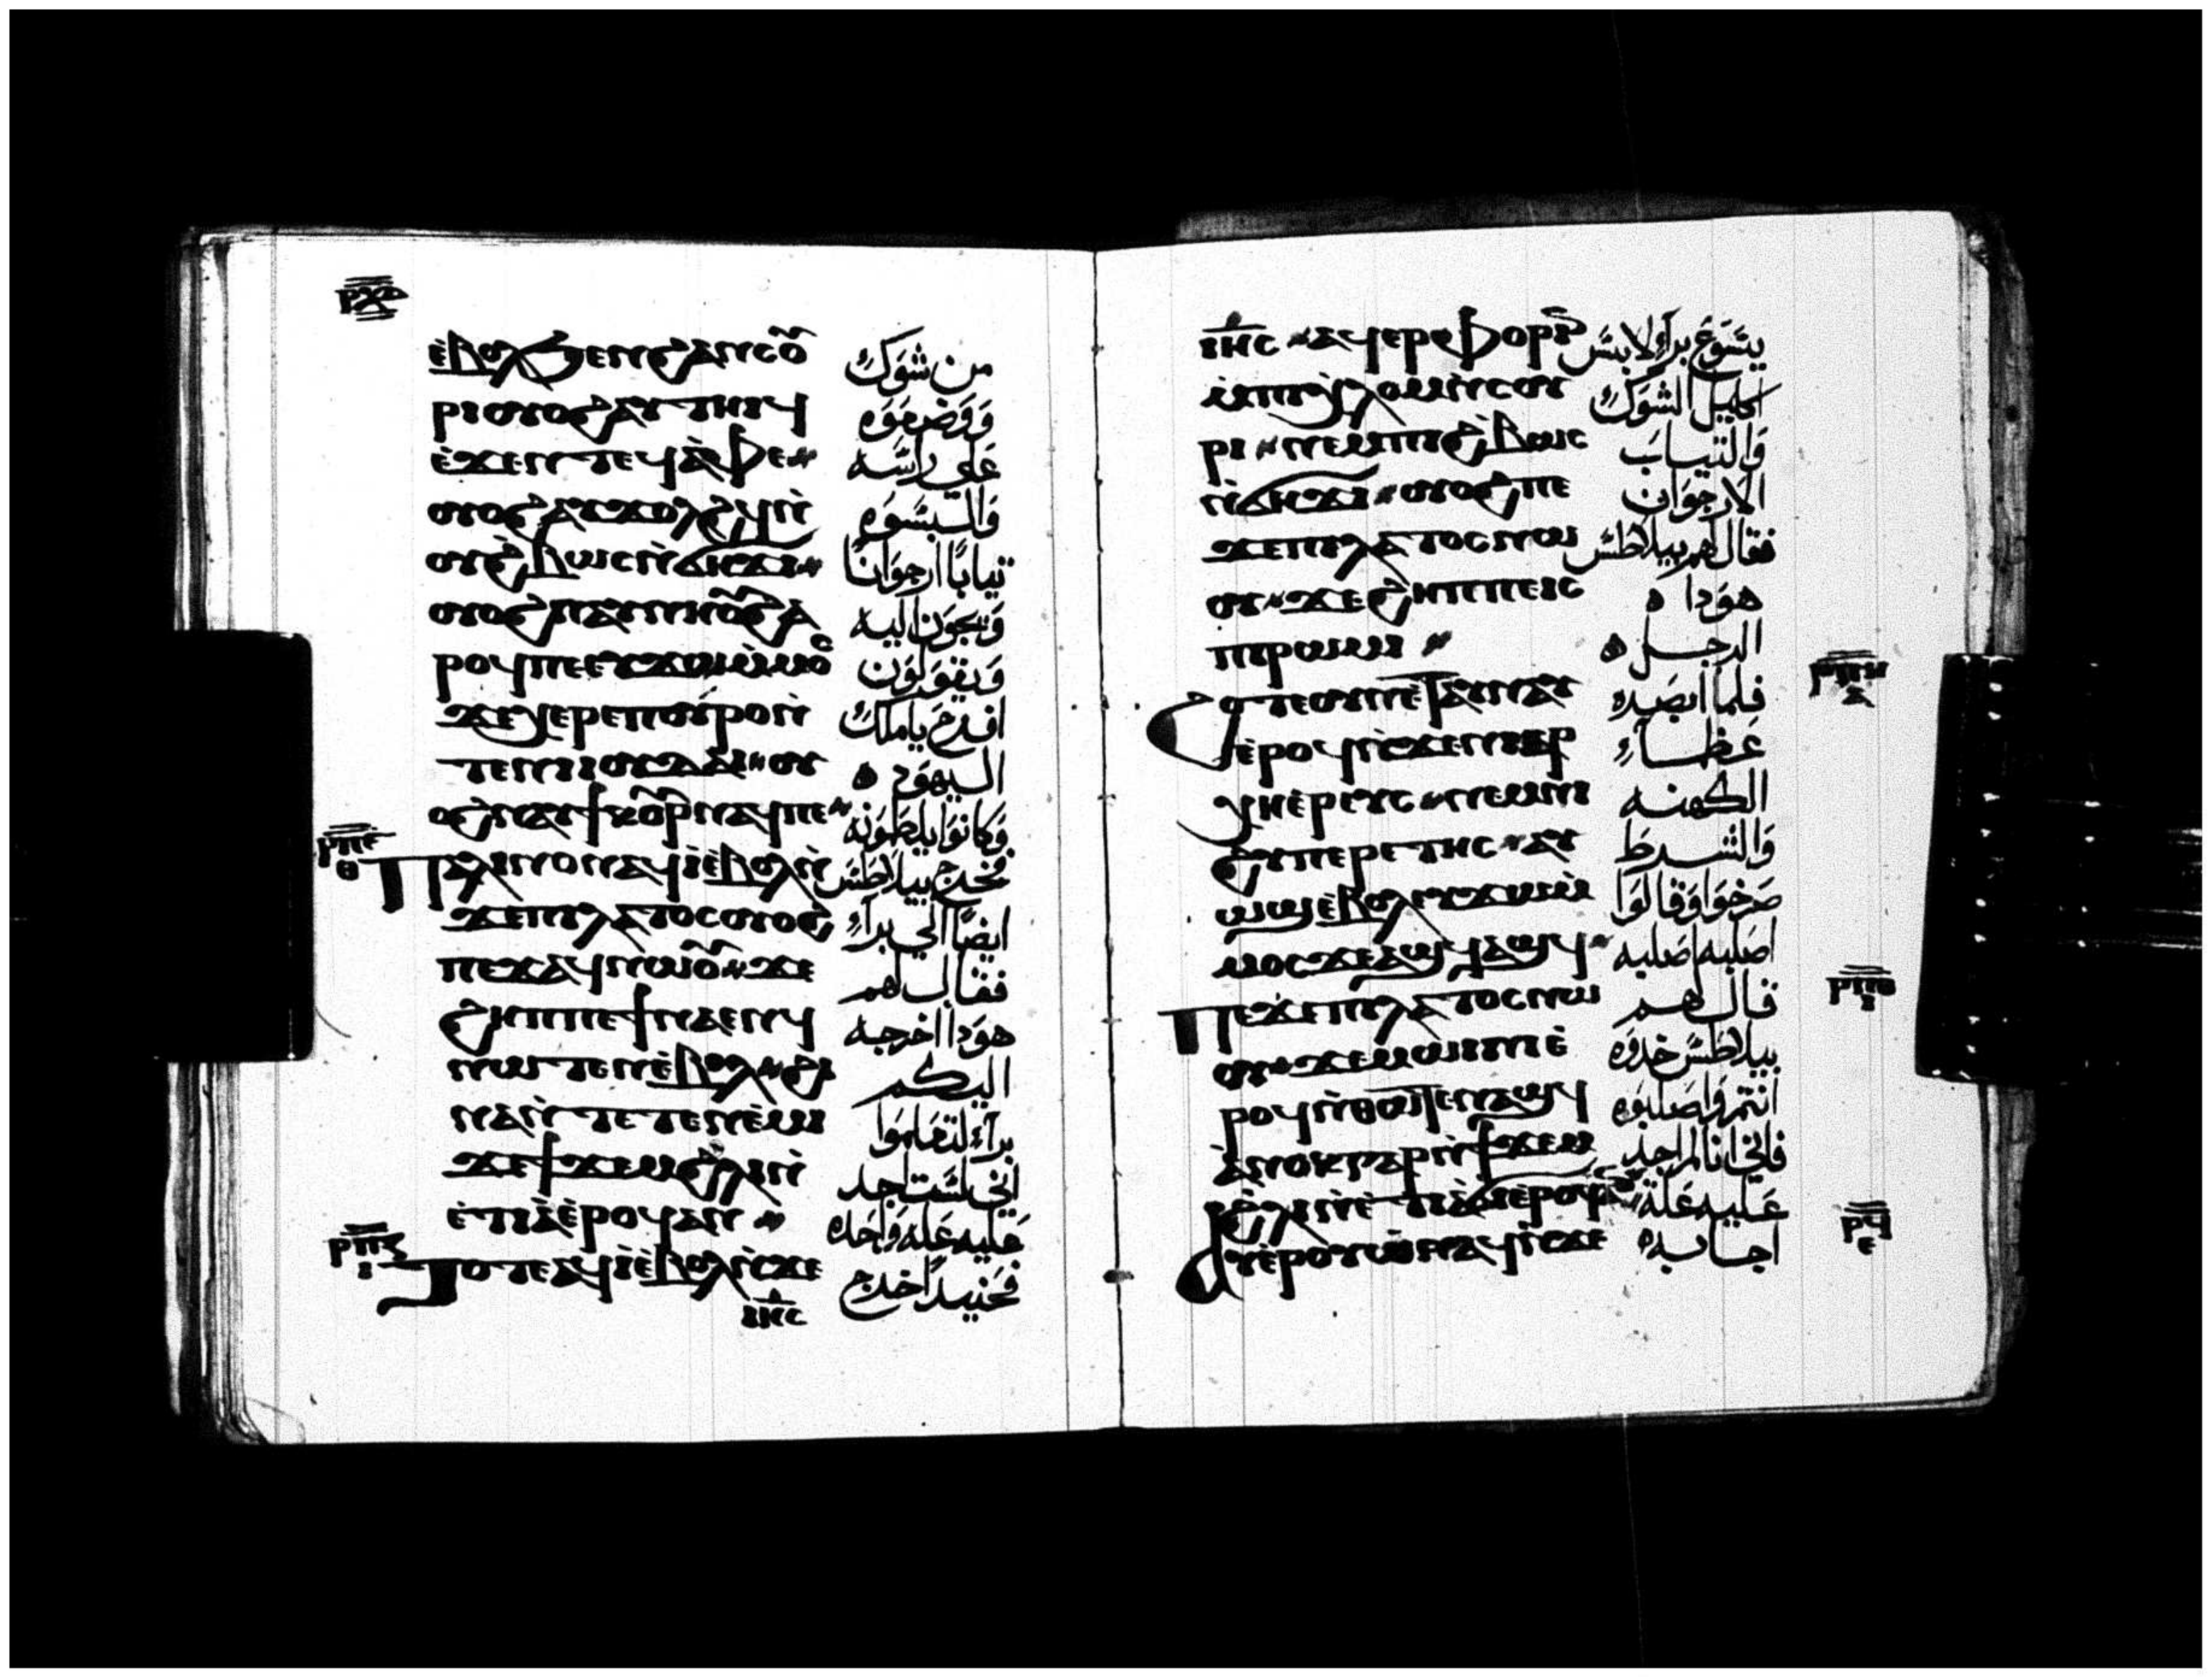 ⲣⲝⲑ
ⲉ̀ⲃⲟⲗϧⲉⲛϩⲁⲛⲥⲟ̅ⲩ̅
ⲣⲓⲟⲩⲟϩⲁⲩⲧⲏⲓϥ
ⲉ̀ϫⲉⲛⲧⲉϥⲁ̀ⲫⲉ
ⲟⲩⲟϩⲁⲩϫⲟⲗϩϥⲛ̀
ⲟⲩϩ̀ⲃⲱⲥⲛ̀ϭⲏϫⲓ
ⲟⲩⲟϩⲛⲁⲩⲛⲏⲟⲩϩⲁ
ⲣⲟϥⲡⲉⲉⲩϫⲱⲙ̀ⲙⲟⲥ
ϫⲉⲭⲉⲣⲉⲡⲟⲩⲣⲟⲛ̀
ⲧⲉⲛⲓⲓⲟⲩⲇⲁⲓ ⲟⲩ
ⲟϩⲛⲁⲩϯⲕⲟⲩⲣⲛⲁϥⲡⲉ
ⲣⲡⲉ
ⲑ
ⲡⲁⲗⲓⲛⲟⲛⲁϥⲓ̀ⲉ̀ⲃⲟⲗⲛ̀
ϫⲉⲡⲓⲗⲁⲧⲟⲥⲟⲩⲟϩ
ⲡⲉϫⲁϥⲛⲱⲟⲩ ϫⲉ
ϩⲏⲡⲡⲉϯⲛⲁⲉⲛϥ
ⲛⲱⲧⲉⲛⲉ̀ⲃⲟⲗ ϩⲓ
ⲛⲁⲛ̀ⲧⲉⲧⲉⲛⲉ̀ⲙⲓ
ϫⲉϯϫⲉⲙϩ̀ⲗⲓⲛ̀
ⲉ̀ⲧⲓⲁ̀ⲉ̀ⲣⲟϥⲁⲛ
ⲣⲡⲍ
ⲓ
ⲧⲟⲧⲉⲁϥⲓ̀ⲉ̀ⲃⲟⲗⲛ̀ϫⲉ
ⲓⲏⲥ
من شوك
ووضعوه
على راسه
والبسوه
ثيابا ارجوانا
ويجون اليه
ويقولون
افرح يا ملك
اليهود
وكانوا يلطمونه
فخرج بيلاطس
ايضا الي برا
فقال لهم
هودا اخرجه
اليكم
برا لتعلموا
اني لست اجد
عليه علة واحده
فحنيدا خرج
ⲓⲏⲥ ⲁϥⲉⲣⲫⲟⲣⲓⲛ
ⲙ̀ⲡⲓⲭ̀ⲗⲟⲙⲛ̀ⲥⲟⲩ
ⲣⲓ ⲛⲉⲙⲡⲓϩ̀ⲃⲱⲥ
ⲛ̀ϭⲏϫⲓ ⲟⲩⲟϩⲡⲉ
ϫⲉⲡⲓⲗⲁⲧⲟⲥⲛⲱ
ⲟⲩ ϫⲉϩⲏⲡⲡⲉⲓⲥ
ⲡⲓⲣⲱⲙⲓ
ϩⲟⲧⲉⲟⲩⲛⲉ̀ⲧⲁⲩⲛⲁⲩ
ⲉ̀ⲣⲟϥⲛ̀ϫⲉⲛⲓⲁⲣ
ⲭⲏⲉ̀ⲣⲉⲩⲥ ⲛⲉⲙⲛⲓ
ϩⲩⲡⲉⲣⲉⲧⲏⲥ ⲁⲩ
ⲱϣⲉ̀ⲃⲟⲗⲉⲩϫⲱⲙ̀
ⲙⲟⲥϫⲉⲁϣϥⲁϣϥ
ⲡⲉϫⲉⲡⲓⲗⲁⲧⲟⲥⲛⲱ
ⲟⲩ ϫⲉⲙⲱⲓⲛⲓⲉ̀
ⲣⲟϥⲛ̀ⲑⲱⲧⲉⲛⲁϣϥ
ⲁ̀ⲛⲟⲕⲅⲁⲣⲛ̀ϯϫⲉⲙ
ϩ̀ⲗⲓⲛ̀ⲉ̀ⲧⲓⲁ̀ⲉ̀ⲣⲟϥⲁⲛ
ⲁⲩⲉ̀ⲣⲟⲩⲱ̀ⲛⲁϥⲛ̀ϫⲉ
يسوع برا لابس
اكليل الشوك
والثياب
الارجوان
فقال لهم بيلاطس
هودا
الرجل
فلما ابصره
عظما
الكهنه
والشرط
صرخوا وقالوا
اصلبه اصلبه
قال لهم
بيلاطس خدوه
انتم واصلبوه
فاني انا لم اجد
عليه علة
اجابه
ⲣⲡⲏ
ⲁ
ⲣⲡⲑ
ⲣϥ
ⲉ